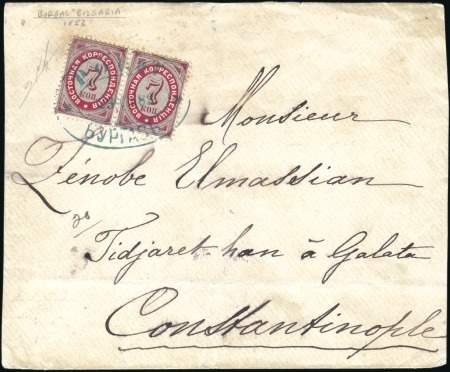 BURGAS "BULGARIA"
1883
ВОСТОЧНАЯ КОРРЕСПОНДЕНЦІЯ
7
КОП
ВОСТОЧНАЯ КОРРЕСПОНДЕНЦІЯ
7
КОП
БУРГАСЪ
Monsieur
Zénobe Elmassian
Tidjaret han à Galata
Constantinople